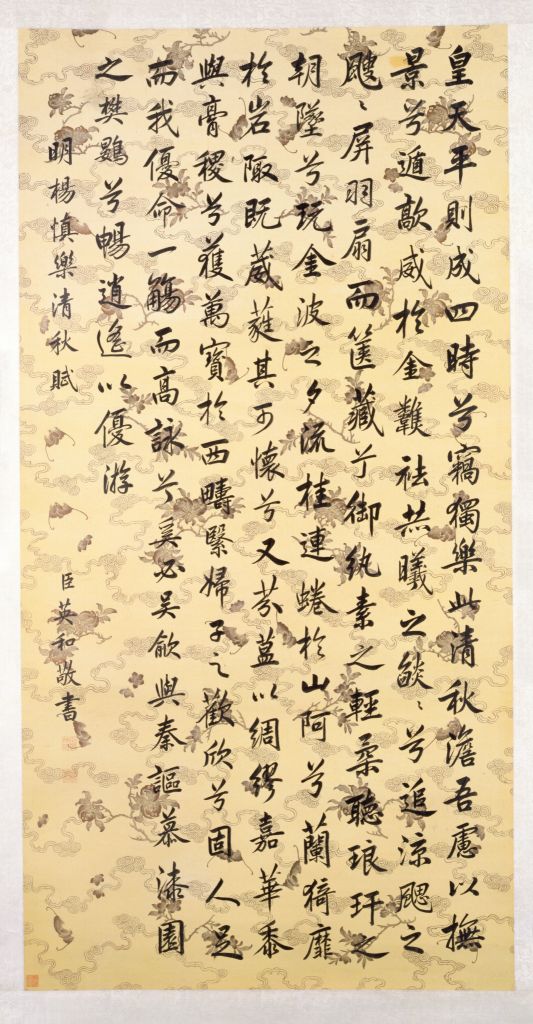 皇天平則成四時兮竊獨樂此清秋澹吾慮以撫
景兮遁歊威於金祛赫曦之燄〻兮追涼颸之
颼〻屏羽扇而篋藏兮御紈素之輕柔聽琅玕之
朝墜兮玩金波之夕流桂連蜷於山阿兮蘭猗靡
於岩陬既葳蕤其可懷兮又芬蒀以綢繆嘉華黍
與膏稷兮穫萬寶於西疇繄婦子之歡欣兮固人足
而我優命一觴而高詠兮奚必吳歈與秦謳慕漆園
之樊鷃兮暢逍遙以優游
明楊慎樂清秋賦
臣英和敬書